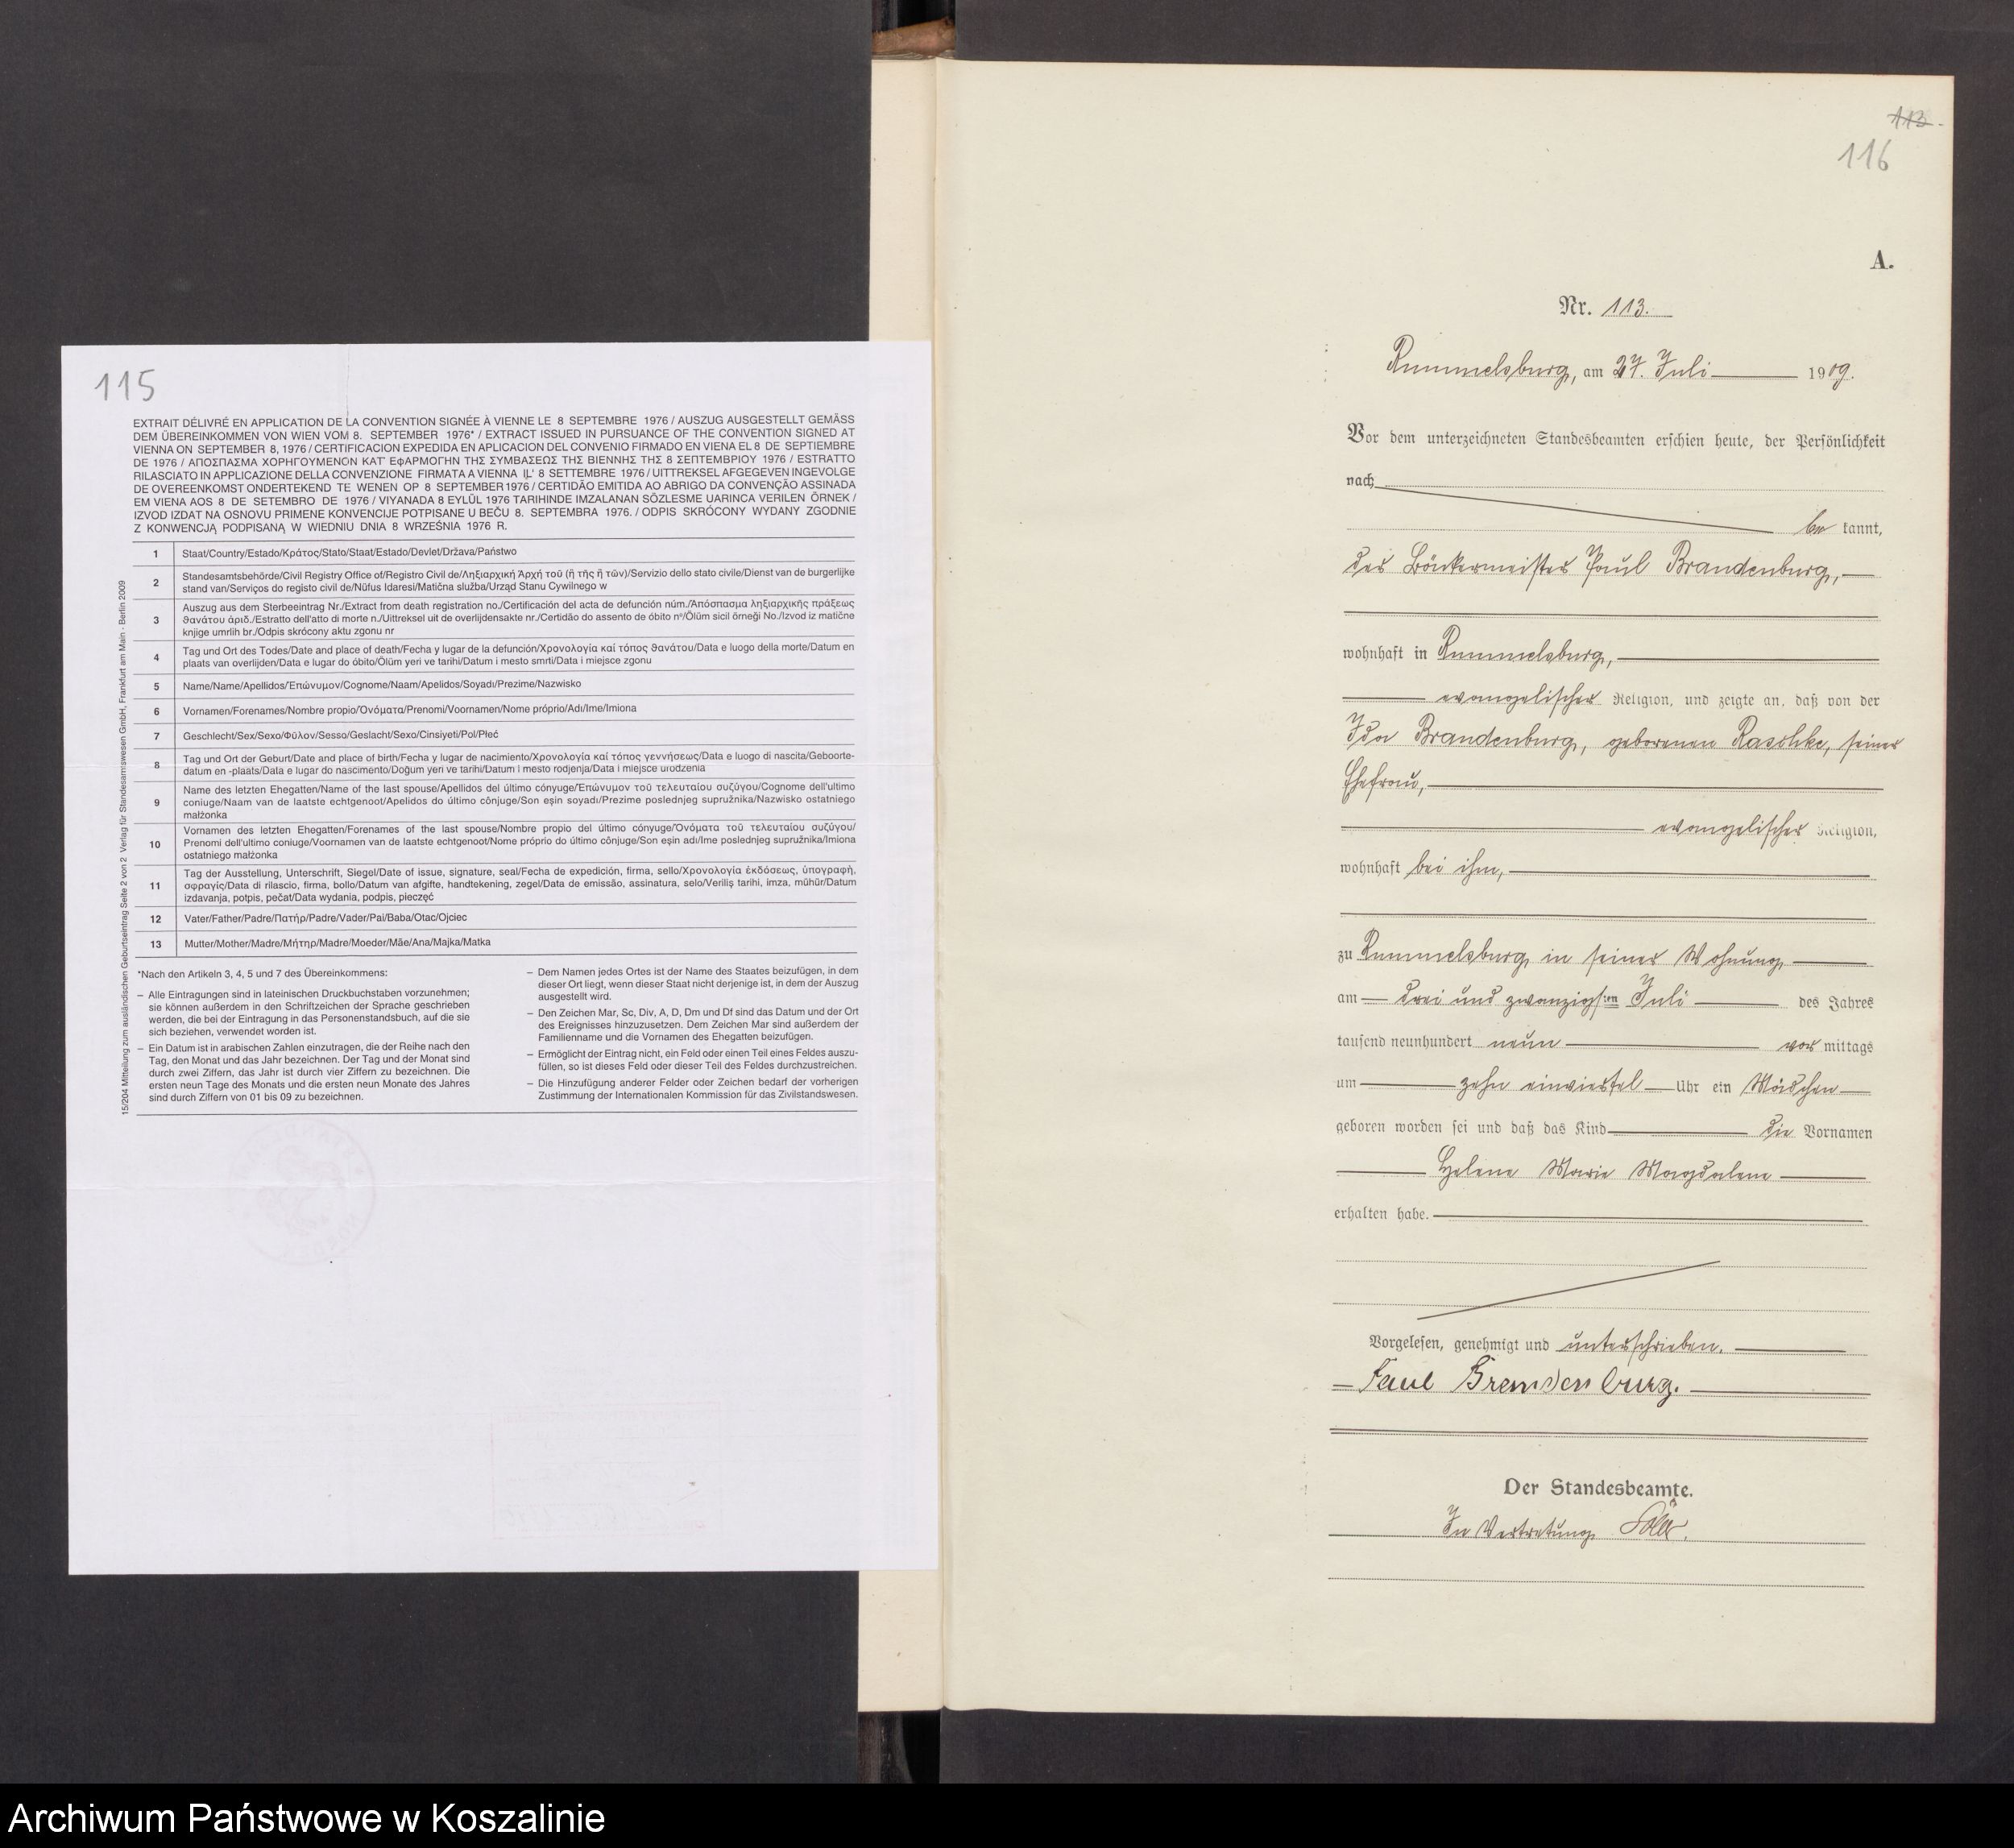 115
EXTRAIT DÉLIVRÉ EN APPLICATION DE LA CONVENTION SIGNÉE À VIENNE LE 8 SEPTEMBRE 1976 / AUSZUG AUSGESTELLT GEMÄSS
DEM ÜBEREINKOMMEN VON WIEN VOM 8. SEPTEMBER 1976* / EXTRACT ISSUED IN PURSUANCE OF THE CONVENTION SIGNED AT
VIENNA ON SEPTEMBER 8, 1976 / CERTIFICACION EXPEDIDA EN APLICACION DEL CONVENIO FIRMADO EN VIENA EL 8 DE SEPTIEMBRE
DE 1976 / ΑΠΟΣΠΑΣΜΑ ΧΟΡΗΓΟΥΜΕΝΟΝ ΚΑΤ' ΕΦΑΡΜΟΓΗΝ ΤΗΣ ΣΥΜΒΑΣΕΩΣ ΤΗΣ ΒΙΕΝΝΗΣ ΤΗΣ 8 ΣΕΠΤΕΜΒΡΙΟΥ 1976 / ESTRATTO
RILASCIATO IN APPLICAZIONE DELLA CONVENZIONE FIRMATA A VIENNA IL' 8 SETTEMBRE 1976 / UITTREKSEL AFGEGEVEN INGEVOLGE
DE OVEREENKOMST ONDERTEKEND TE WENEN OP 8 SEPTEMBER 1976 / CERTIDÃO EMITIDA AO ABRIGO DA CONVENÇÃO ASSINADA
EM VIENA AOS 8 DE SETEMBRO DE 1976 / VIYANADA 8 EYLÜL 1976 TARIHINDE IMZALANAN SÖZLESME UARINCA VERILEN ÖRNEK /
IZVOD IZDAT NA OSNOVU PRIMENE KONVENCIJE POTPISANE U BEČU 8. SEPTEMBRA 1976. / ODPIS SKRÓCONY WYDANY ZGODNIE
Z KONWENCJĄ PODPISANĄ W WIEDNIU DNIA 8 WRZEŚNIA 1976 R.
1 Staat/Country/Estado/Κράτος/Stato/Staat/Estado/Devlet/Država/Państwo
2 Standesamtsbehörde/Civil Registry Office of/Registro Civil de/Ληξιαρχική Ἀρχή τοῦ (ἢ τῆς ἢ τῶν)/Servizio dello stato civile/Dienst van de burgerlijke
stand van/Serviços do registo civil de/Nüfus Idaresi/Matična služba/Urząd Stanu Cywilnego w
3 Auszug aus dem Sterbeeintrag Nr./Extract from death registration no./Certificación del acta de defunción núm./Ἀπόσπασμα ληξιαρχικῆς πράξεως
θανάτου ἀριθ./Estratto dell'atto di morte n./Uittreksel uit de overlijdensakte nr./Certidão do assento de óbito nº/Ölüm sicil örneği No./Izvod iz matične
knjige umrlih br./Odpis skrócony aktu zgonu nr
4 Tag und Ort des Todes/Date and place of death/Fecha y lugar de la defunción/Χρονολογία καί τόπος θανάτου/Data e luogo della morte/Datum en
plaats van overlijden/Data e lugar do óbito/Ölüm yeri ve tarihi/Datum i mesto smrti/Data i miejsce zgonu
5 Name/Name/Apellidos/Ἐπώνυμον/Cognome/Naam/Apelidos/Soyadı/Prezime/Nazwisko
6 Vornamen/Forenames/Nombre propio/Ὀνόματα/Prenomi/Voornamen/Nome próprio/Adı/Ime/Imiona
7 Geschlecht/Sex/Sexo/Φῦλον/Sesso/Geslacht/Sexo/Cinsiyeti/Pol/Płeć
8 Tag und Ort der Geburt/Date and place of birth/Fecha y lugar de nacimiento/Χρονολογία καί τόπος γεννήσεως/Data e luogo di nascita/Geboorte-
datum en -plaats/Data e lugar do nascimento/Doğum yeri ve tarihi/Datum i mesto rodjenja/Data i miejsce urodzenia
9 Name des letzten Ehegatten/Name of the last spouse/Apellidos del último cónyuge/Ἐπώνυμον τοῦ τελευταίου συζύγου/Cognome dell'ultimo
coniuge/Naam van de laatste echtgenoot/Apelidos do último cônjuge/Son eşin soyadı/Prezime poslednjeg supružnika/Nazwisko ostatniego
małżonka
10 Vornamen des letzten Ehegatten/Forenames of the last spouse/Nombre propio del último cónyuge/Ὀνόματα τοῦ τελευταίου συζύγου/
Prenomi dell'ultimo coniuge/Voornamen van de laatste echtgenoot/Nome próprio do último cônjuge/Son eşin adı/Ime poslednjeg supružnika/Imiona
ostatniego małżonka
11 Tag der Ausstellung, Unterschrift, Siegel/Date of issue, signature, seal/Fecha de expedición, firma, sello/Χρονολογία ἐκδόσεως, ὑπογραφή,
σφραγίς/Data di rilascio, firma, bollo/Datum van afgifte, handtekening, zegel/Data de emissão, assinatura, selo/Veriliş tarihi, imza, mühür/Datum
izdavanja, potpis, pečat/Data wydania, podpis, pieczęć
12 Vater/Father/Padre/Πατήρ/Padre/Vader/Pai/Baba/Otac/Ojciec
13 Mutter/Mother/Madre/Μήτηρ/Madre/Moeder/Mãe/Ana/Majka/Matka
*Nach den Artikeln 3, 4, 5 und 7 des Übereinkommens:
– Alle Eintragungen sind in lateinischen Druckbuchstaben vorzunehmen;
sie können außerdem in den Schriftzeichen der Sprache geschrieben
werden, die bei der Eintragung in das Personenstandsbuch, auf die sie
sich beziehen, verwendet worden ist.
– Ein Datum ist in arabischen Zahlen einzutragen, die der Reihe nach den
Tag, den Monat und das Jahr bezeichnen. Der Tag und der Monat sind
durch zwei Ziffern, das Jahr ist durch vier Ziffern zu bezeichnen. Die
ersten neun Tage des Monats und die ersten neun Monate des Jahres
sind durch Ziffern von 01 bis 09 zu bezeichnen.
– Dem Namen jedes Ortes ist der Name des Staates beizufügen, in dem
dieser Ort liegt, wenn dieser Staat nicht derjenige ist, in dem der Auszug
ausgestellt wird.
– Den Zeichen Mar, Sc, Div, A, D, Dm und Df sind das Datum und der Ort
des Ereignisses hinzuzusetzen. Dem Zeichen Mar sind außerdem der
Familienname und die Vornamen des Ehegatten beizufügen.
– Ermöglicht der Eintrag nicht, ein Feld oder einen Teil eines Feldes auszu-
füllen, so ist dieses Feld oder dieser Teil des Feldes durchzustreichen.
– Die Hinzufügung anderer Felder oder Zeichen bedarf der vorherigen
Zustimmung der Internationalen Kommission für das Zivilstandswesen.
15/204 Mitteilung zum ausländischen Geburtseintrag Seite 2 von 2 Verlag für Standesamtswesen GmbH, Frankfurt am Main · Berlin 2009
113.
116
A.
Nr. 113.
Rummelsburg, am 27. Juli 1909.
Vor dem unterzeichneten Standesbeamten erschien heute, der Persönlichkeit
nach
be kannt,
der Bäckermeister Paul Brandenburg,
wohnhaft in Rummelsburg,
evangelischer Religion, und zeigte an, daß von der
Ida Brandenburg, geborenen Raschke, seiner
Ehefrau,
evangelischer Religion,
wohnhaft bei ihm,
zu Rummelsburg in seiner Wohnung
am drei und zwanzigsten Juli des Jahres
tausend neunhundert neun vor mittags
um zehn einviertel Uhr ein Mädchen
geboren worden sei und daß das Kind die Vornamen
Helene Marie Magdalene
erhalten habe.
Vorgelesen, genehmigt und unterschrieben.
Paul Brandenburg.
Der Standesbeamte.
In Vertretung
Archiwum Państwowe w Koszalinie